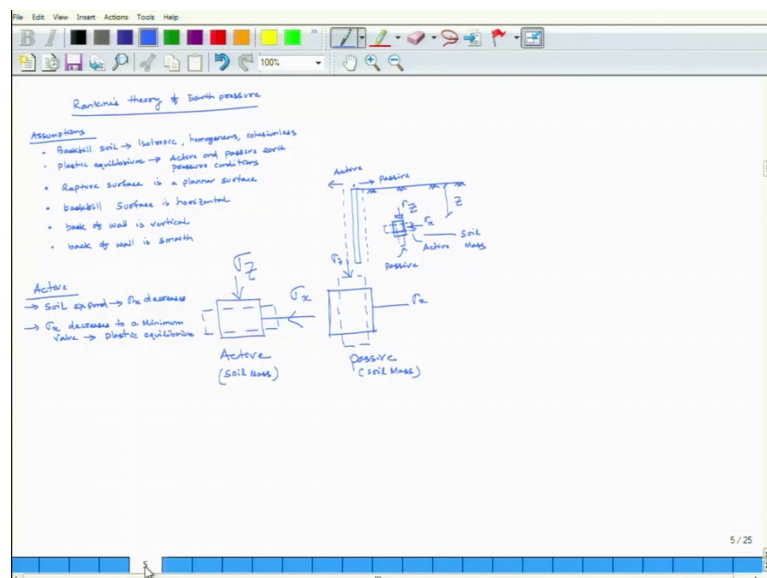 File Edit View Insert Actions Tools Help
B I
100%
Rankine's theory of Earth pressure
Assumptions
• Backfill soil → Isotropic, homogeneous, cohesionless
• Plastic equilibrium → Active and passive earth
pressure conditions
• Rapture surface is a plannar surface
• backfill surface is horizontal
• back of wall is vertical
• back of wall is smooth
Active
→ Soil expand → σx decreases
→ σx decreases to a Minimum
value → plastic equilibrium
Active
Passive
Z
σz
σx
Soil
Mass
Active
Passive
σz
σx
Active
(Soil Mass)
σz
σx
Passive
(Soil Mass)
5 / 25
5